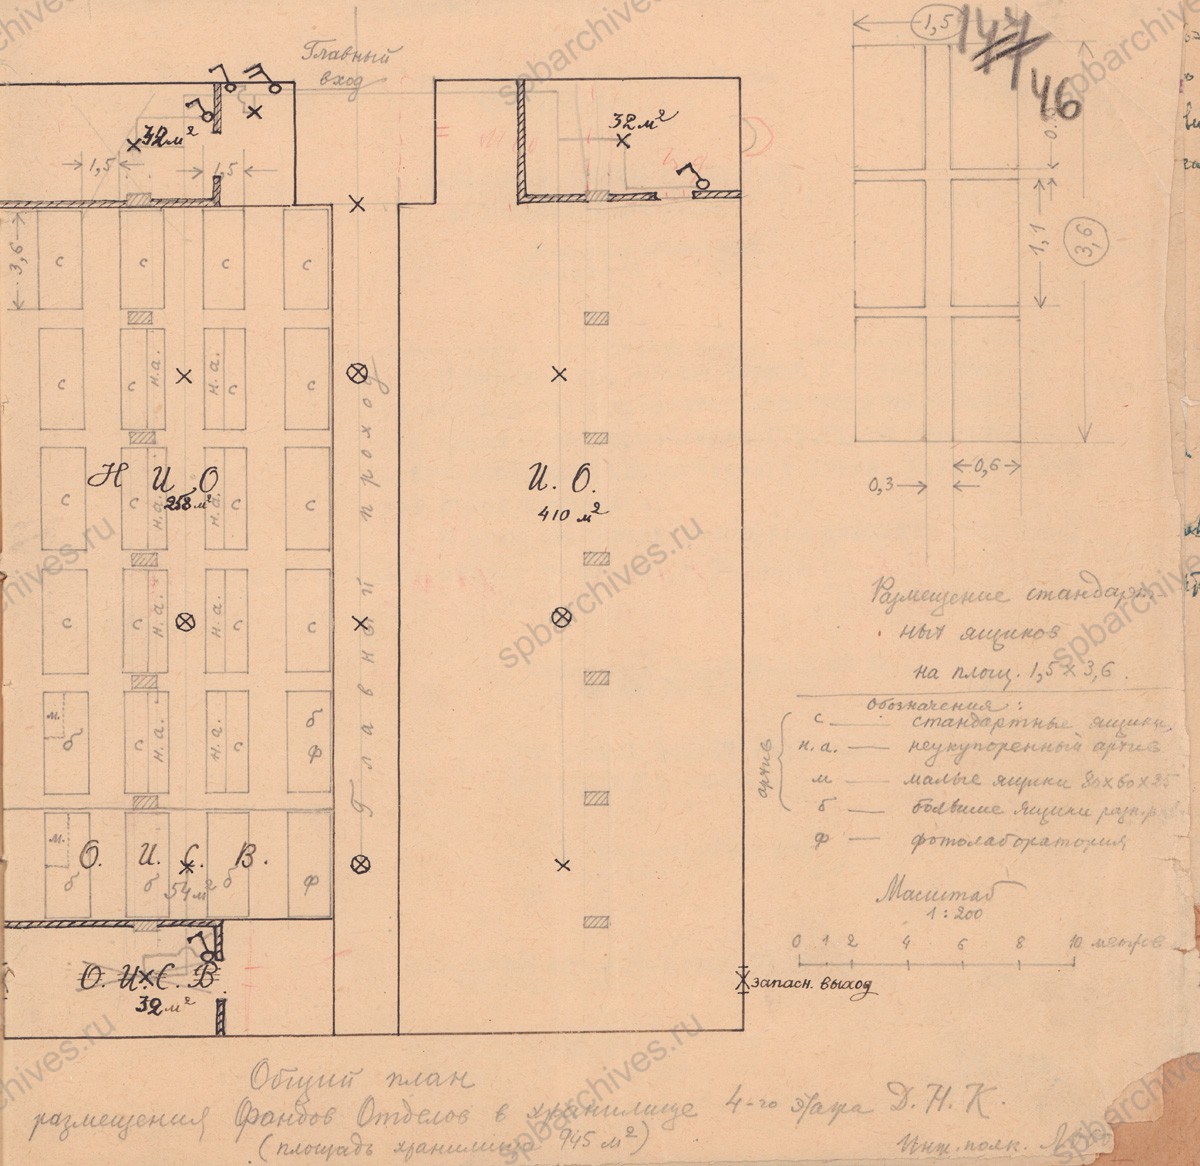 Главный
вход
1,5
147
46
32 м²
32 м²
1,5
1,5
3,6
с
с
с
с
1,1
3,6
с
с
н.а.
н.а.
с
с
Главный проход
0,6
0,3
Н И О
258 м²
с
с
н.а.
н.а.
с
с
И. О.
410 м²
Размещение стандарт-
ных ящиков
на площ. 1,5 х 3,6.
с
с
н.а.
н.а.
с
с
обозначения:
архив
с — стандартные ящики
н.а. — неукупоренный архив
м — малые ящики 80х60х25
б — большие ящики
ф — фотолаборатория
м.
б
с
н.а.
н.а.
с
б
ф
м.
б
О. И. С. В.
54 м²
б
б
ф
Масштаб
1:200
0 1 2 4 6 8 10 метров
О. И. С. В
32 м²
запасн. выход
Общий план
размещения Фондов Отделов в хранилище 4-го этажа Д.Н.К.
(площадь хранилища 945 м²)
Инж. полк.
spbarchives.ru
spbarchives.ru
spbarchives.ru
spbarchives.ru
spbarchives.ru
spbarchives.ru
spbarchives.ru